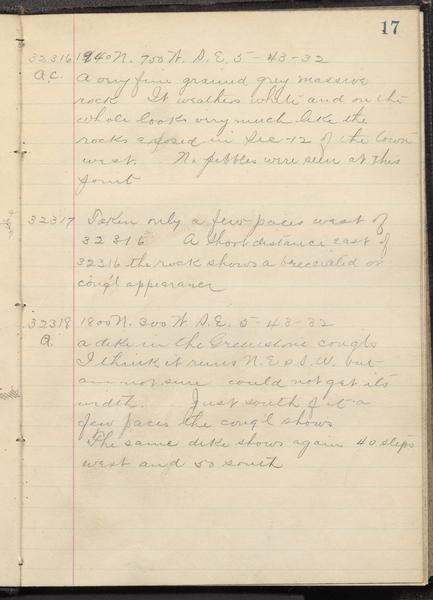 17
32316 1940 N. 750 W. S.E. 5-43-32
A.C. A very fine grained grey massive
rock It weathers white and on the
whole looks very much like the
rocks exposed in Sec-12 of the town
west. No pebbles were seen at this
point
32317 Taken only a few paces west of
32316 A short distance east of
32316 the rock shows a brecciated or
cong'l appearance
32318 1800 N. 300 W. S.E. 5-43-32
A. a dike in the Greenstone congl's
I think it runs N.E & S.W. but
am not sure could not get its
width. Just south of it a
few paces the cong'l shows
The same dike shows again 40 steps
west and 50 south